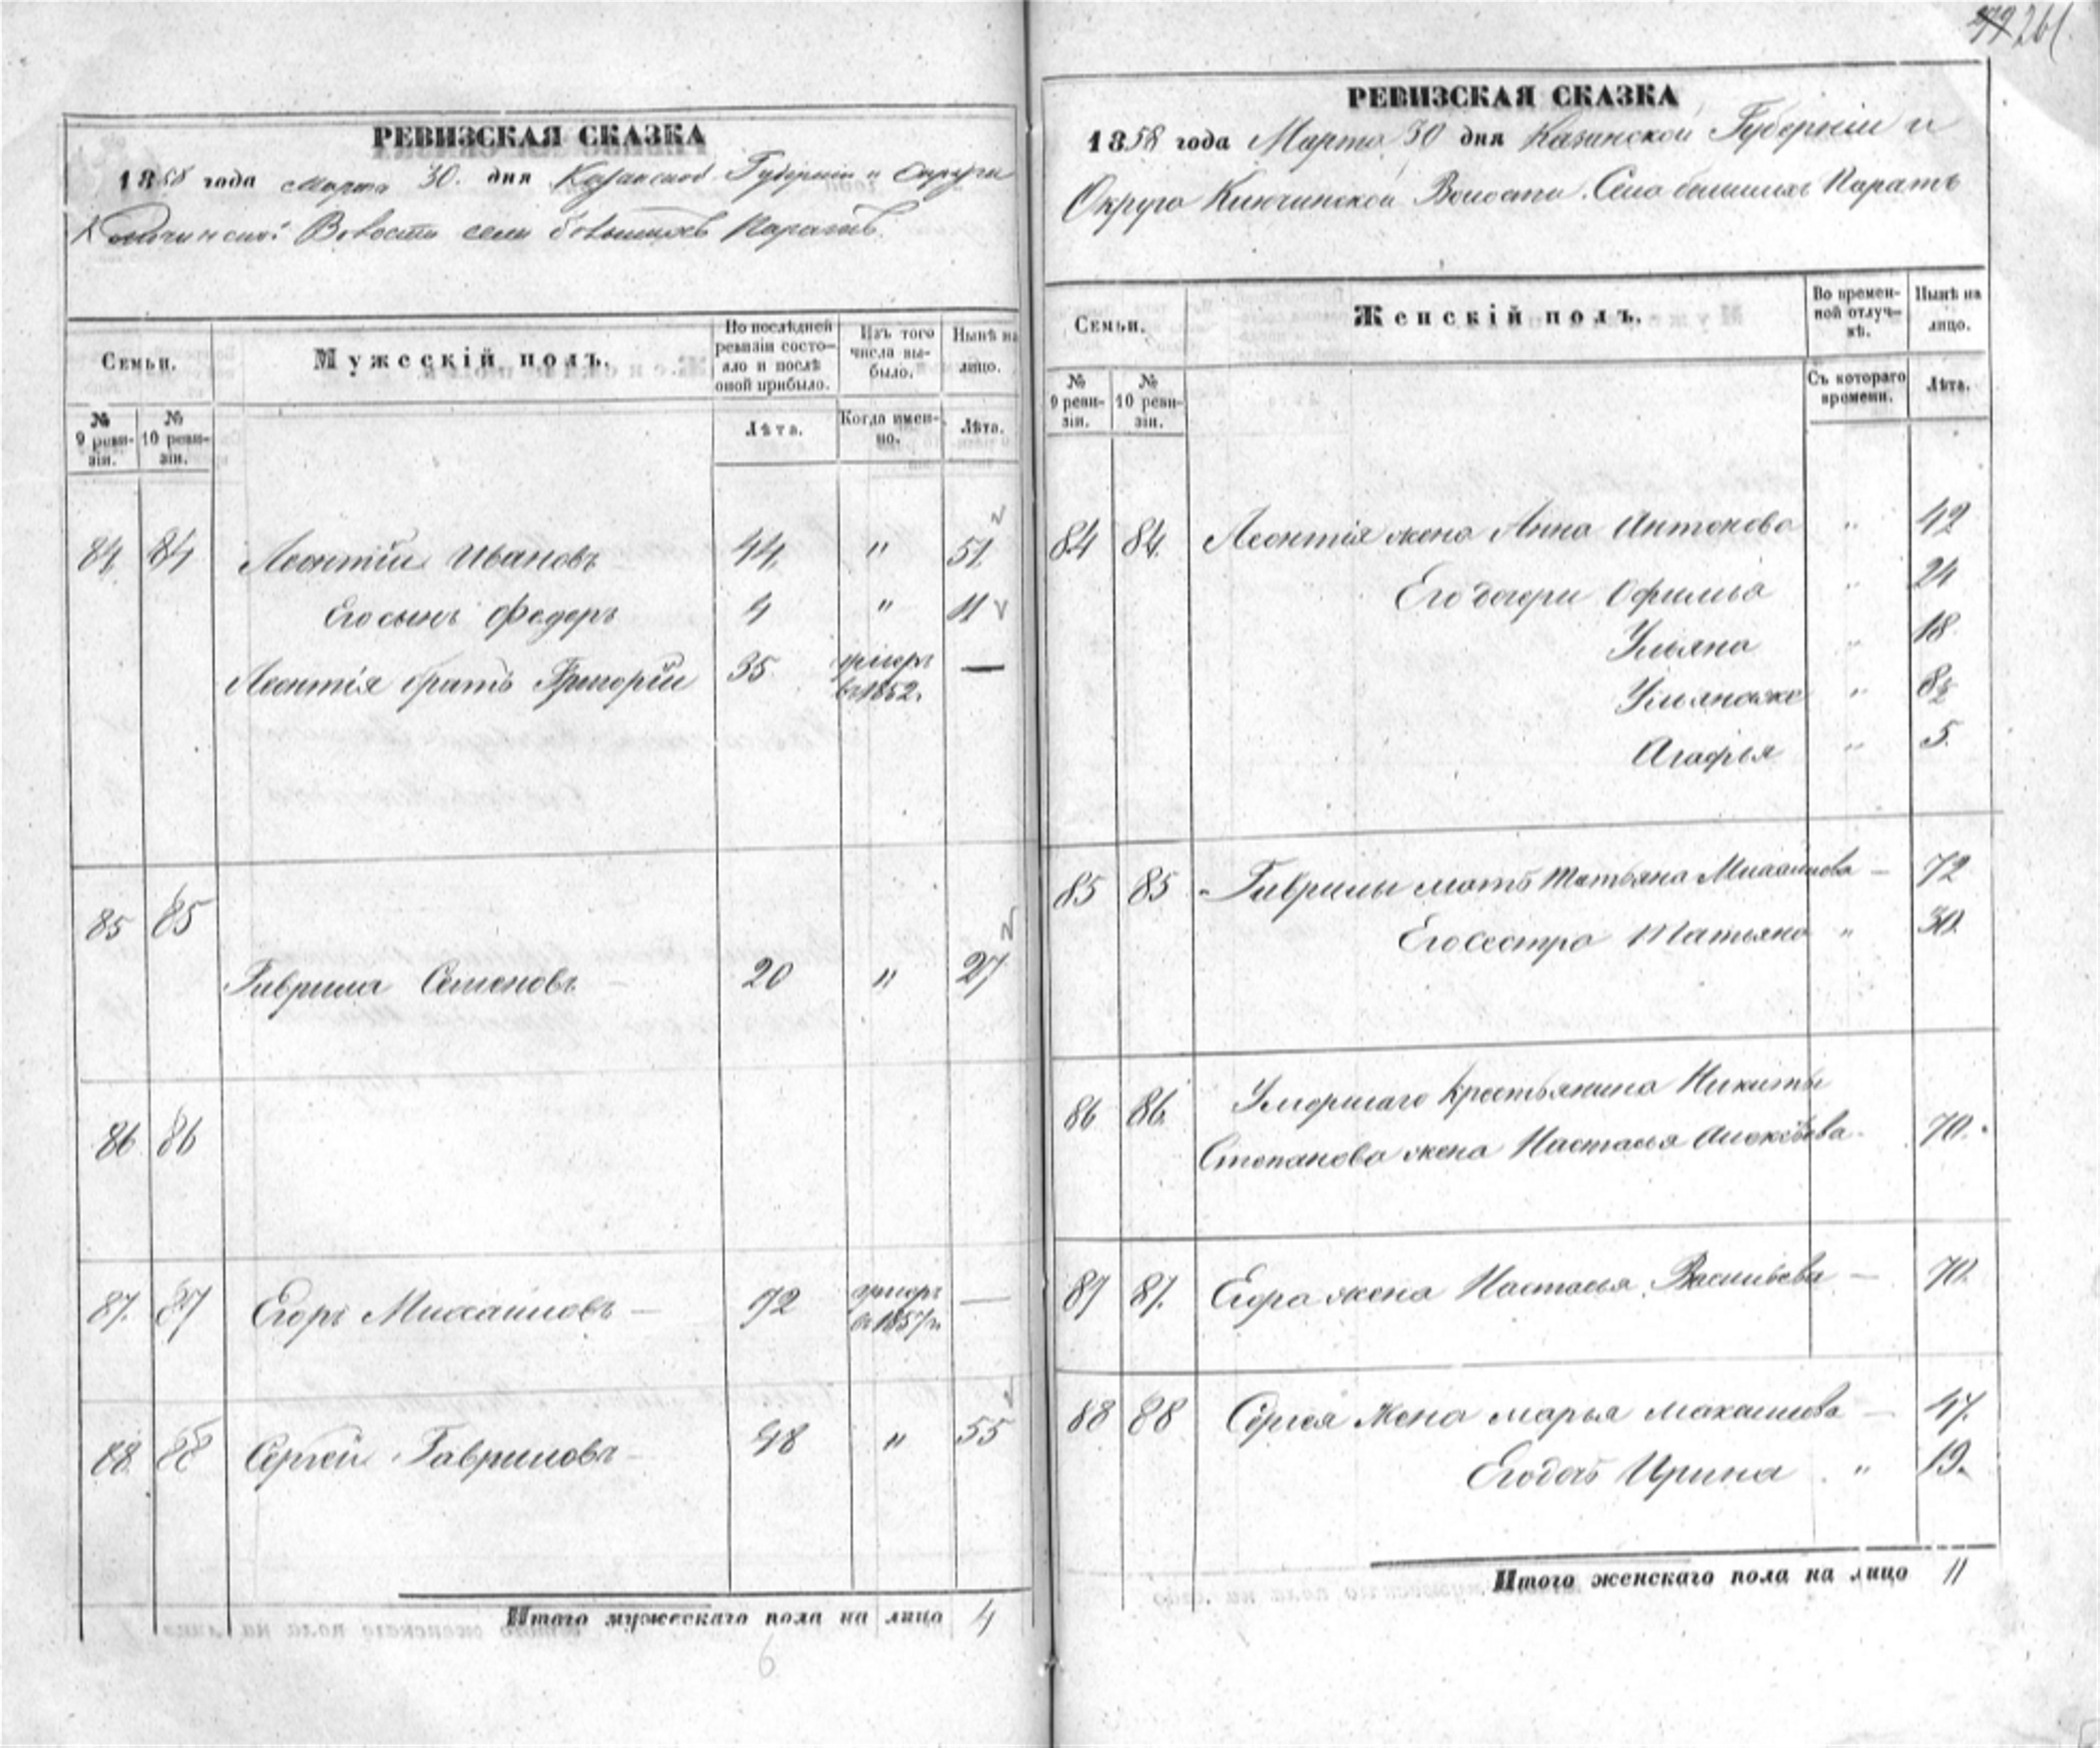 261.
РЕВИЗСКАЯ СКАЗКА
1858 года Марта 30. дня Казанской Губерніи и Округи
Ключинской Волости села большихъ Паратъ.
Семьи.
Мужескій полъ.
По послѣдней ревизіи состояло и послѣ оной прибыло.
Изъ того числа выбыло.
Нынѣ на лицо.
№ 9 ревизіи.
№ 10 ревизіи.
Лѣта.
Когда именно.
Лѣта.
84 84 Леонтій Ивановъ 44 " 51
Его сынъ Федоръ 4 " 11
Леонтія братъ Григорій 35 умеръ въ 1852. —
85 85
Гаврила Семеновъ 20 " 27
86 86
87. 87 Егоръ Михаиловъ — 72 умеръ въ 1857 г. —
88 88 Сергей Гавриловъ — 48 " 55
Итого мужескаго пола на лицо 4
6
РЕВИЗСКАЯ СКАЗКА
1858 года Марта 30 дня Казанской Губерніи и
Округа Ключинской Волости. Село большихъ Паратъ
Семьи.
Женскій полъ.
Во временной отлучкѣ.
Нынѣ на лицо.
№ 9 ревизіи.
№ 10 ревизіи.
Съ котораго времени.
Лѣта.
84 84. Леонтія жена Анна Антонова " 42
Его дочери Офимья " 24
Ульяна " 18
Ульяна же " 8½
Агафья " 5
85 85 Гаврилы мать Татьяна Михаилова — 72
Его сестра Татьяна " 30
86 86 Умершаго крестьянина Никиты
Степанова жена Настасья Алексѣева 70.
87 87. Егора жена Настасья Васильева — 70.
88 88 Сергея Жена марья махаилова — 47.
Его дочь Ирина " 19.
Итого женскаго пола на лицо 11